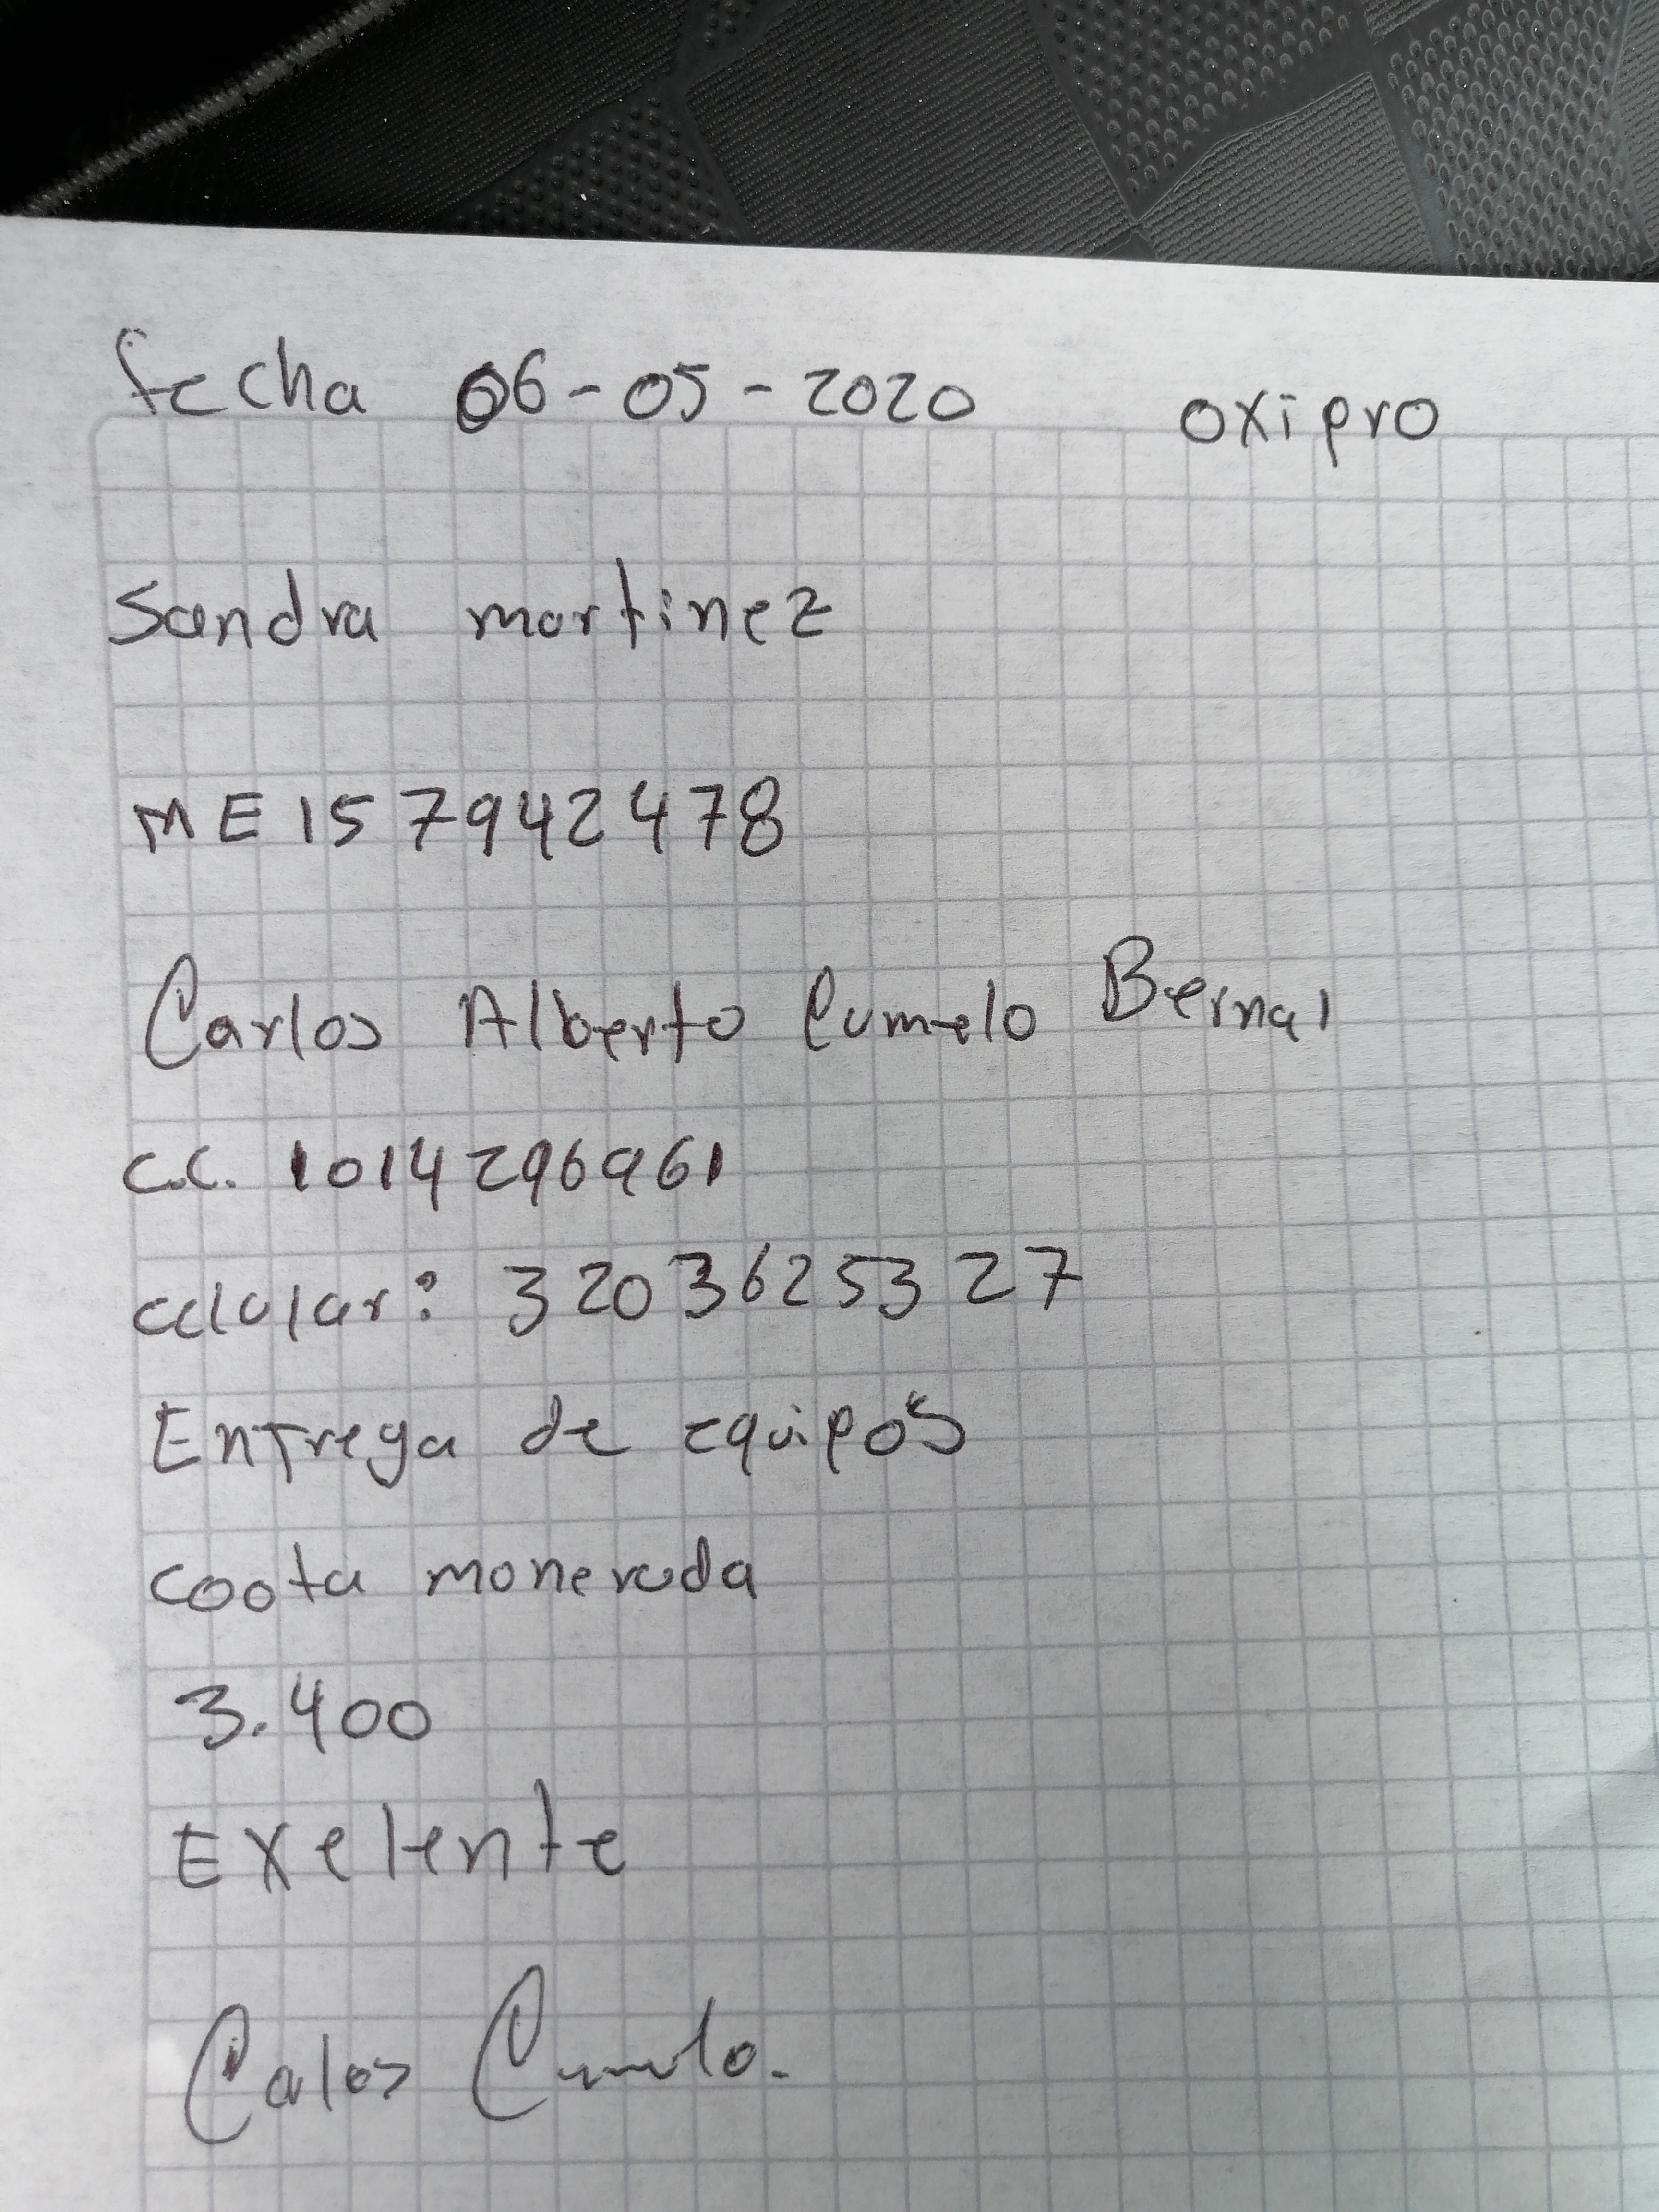 fecha 06-05-2020 oxipro
Sandra martinez
ME157942478
Carlos Alberto Cumelo Bernal
C.C. 1014296961
celular: 3203625327
Entrega de equipos
coota moneruda
3.400
Exelente
Calos Cumelo.